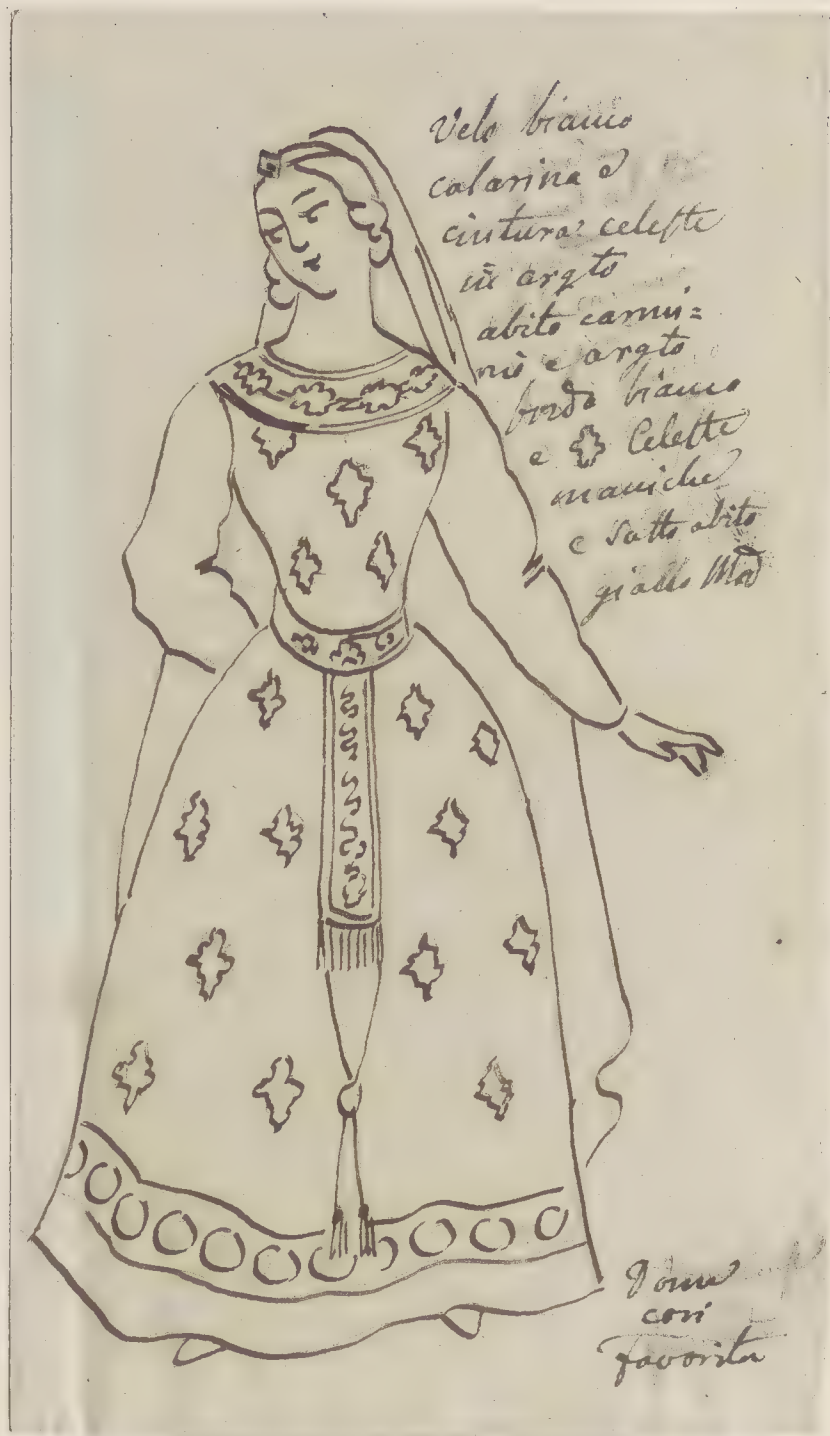 Velo bianco
calarina e
cintura: celeste
in argto
abito carmi=
nio e argto
bordo bianco
e Celeste
maniche
e sotto abito
giallo
Donne
cori
favorita